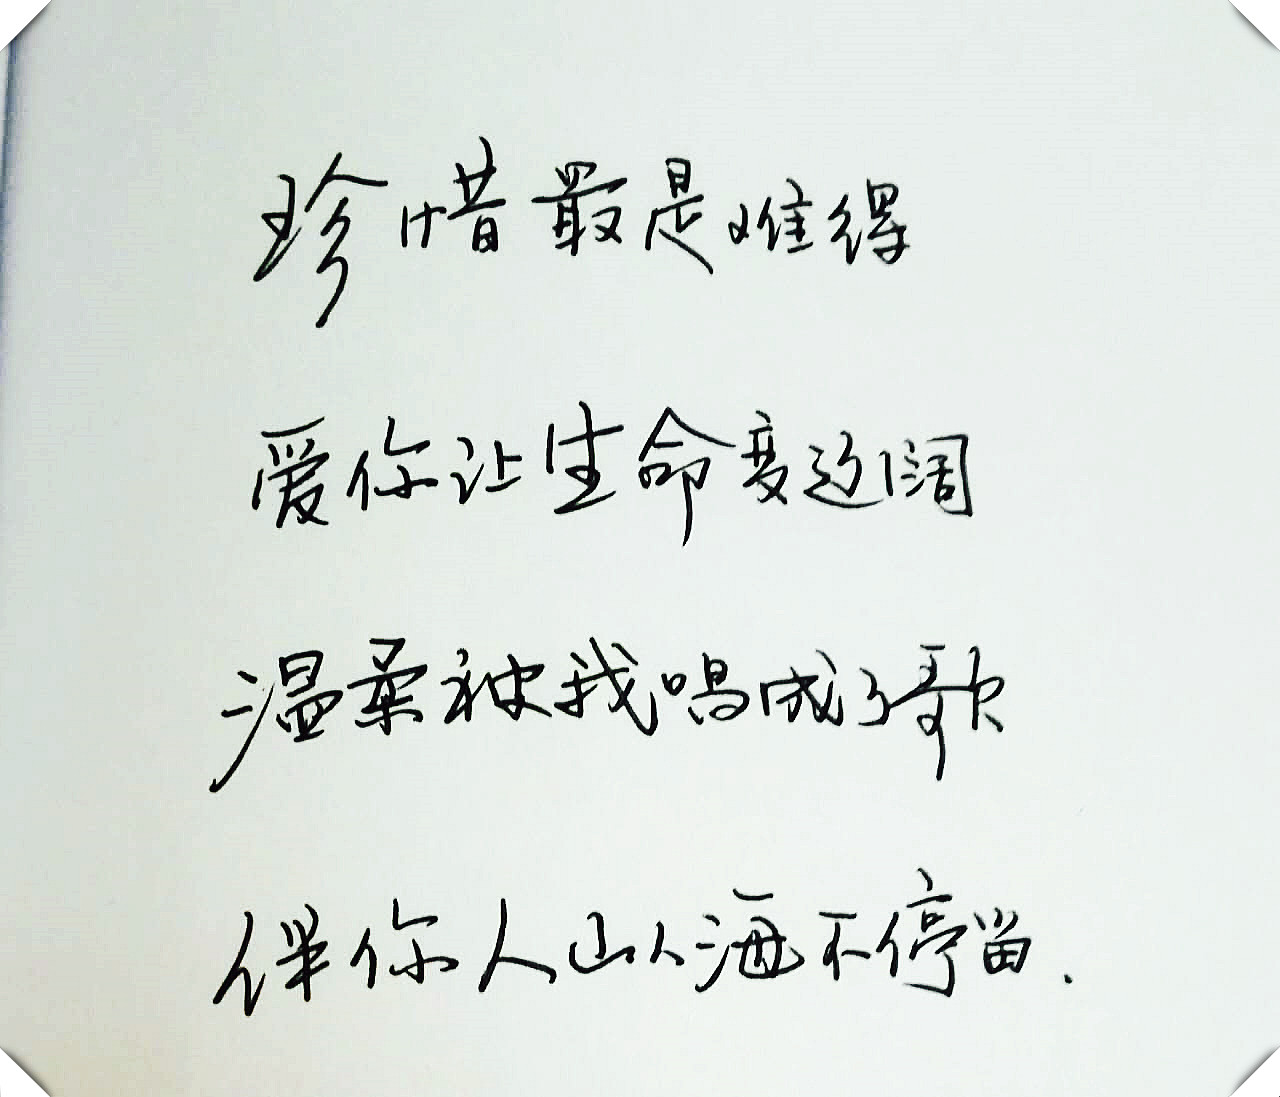 珍惜最是难得
爱你让生命变辽阔
温柔被我唱成了歌
伴你人山人海不停留.